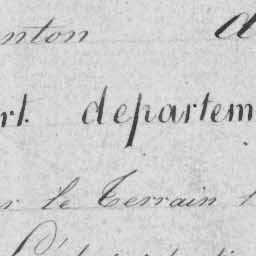 nton d
rt. departem
r le Terrain